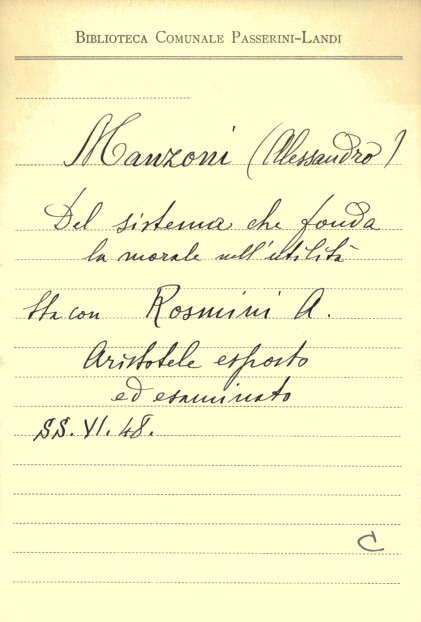 BIBLIOTECA COMUNALE PASSERINI-LANDI
Manzoni (Alessandro)
Del sistema che fonda
la morale nell'utilità
Sta con Rosmini A.
Aristotele esposto
ed esaminato
SS. VI. 48.
C